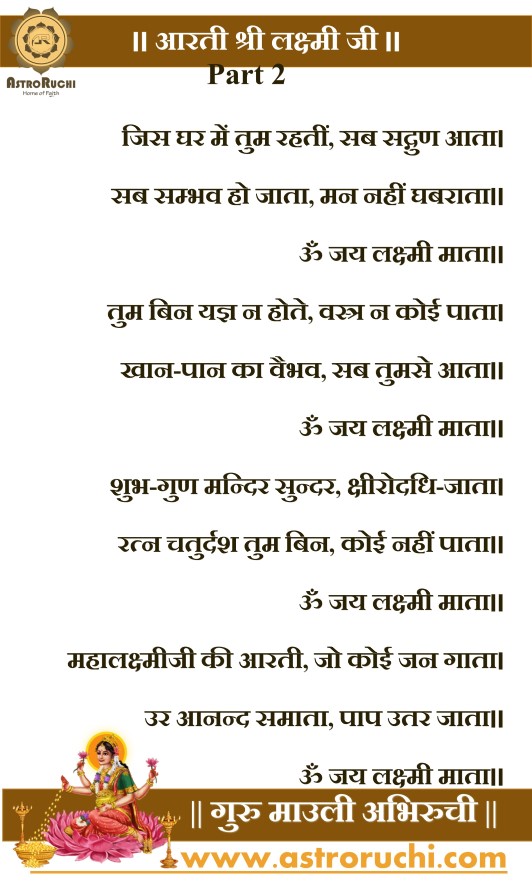 || आरती श्री लक्ष्मी जी ||
Part 2
ASTRORUCHI
Home of Faith
जिस घर में तुम रहतीं, सब सद्गुण आता।
सब सम्भव हो जाता, मन नहीं घबराता॥
ॐ जय लक्ष्मी माता॥
तुम बिन यज्ञ न होते, वस्त्र न कोई पाता।
खान-पान का वैभव, सब तुमसे आता॥
ॐ जय लक्ष्मी माता॥
शुभ-गुण मन्दिर सुन्दर, क्षीरोदधि-जाता।
रत्न चतुर्दश तुम बिन, कोई नहीं पाता॥
ॐ जय लक्ष्मी माता॥
महालक्ष्मीजी की आरती, जो कोई जन गाता।
उर आनन्द समाता, पाप उतर जाता॥
ॐ जय लक्ष्मी माता॥
|| गुरु माउली अभिरुची ||
www.astroruchi.com